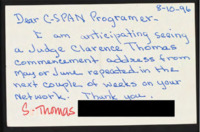 8-10-96
Dear C-SPAN Programer-
I am anticipating seeing
a Judge Clarence Thomas
commencement address from
May or June repeated in the
next couple of weeks on your
Network. Thank you.
S. Thomas